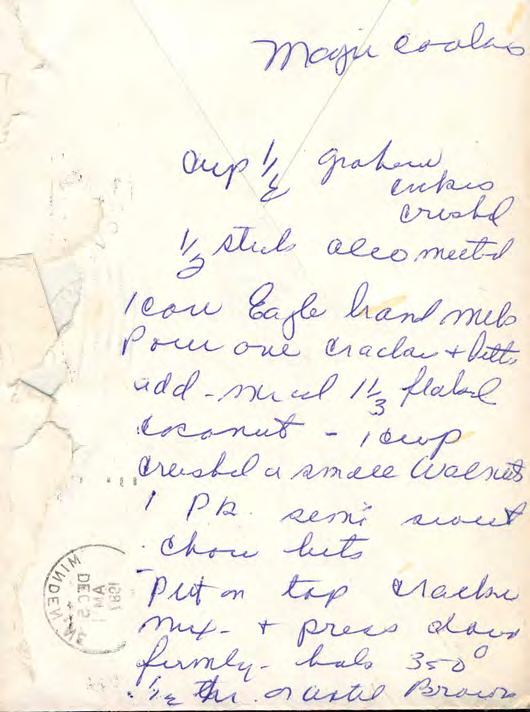 Magic Cookies
Cup 1/2 graham
crushed
1/2 stick oleo melted
1 can Eagle brand milk
Pour over cracker + butter
add - mixed 1 1/3 flaked
coconut - 1 cup
crushed or small walnuts
1 Pk. semi sweet
choco bits
Put on top cracker
mix - + press down
firmly - bake 350°
1/2 hr. or until Brown
MINDEN
DEC 2
AM
1981